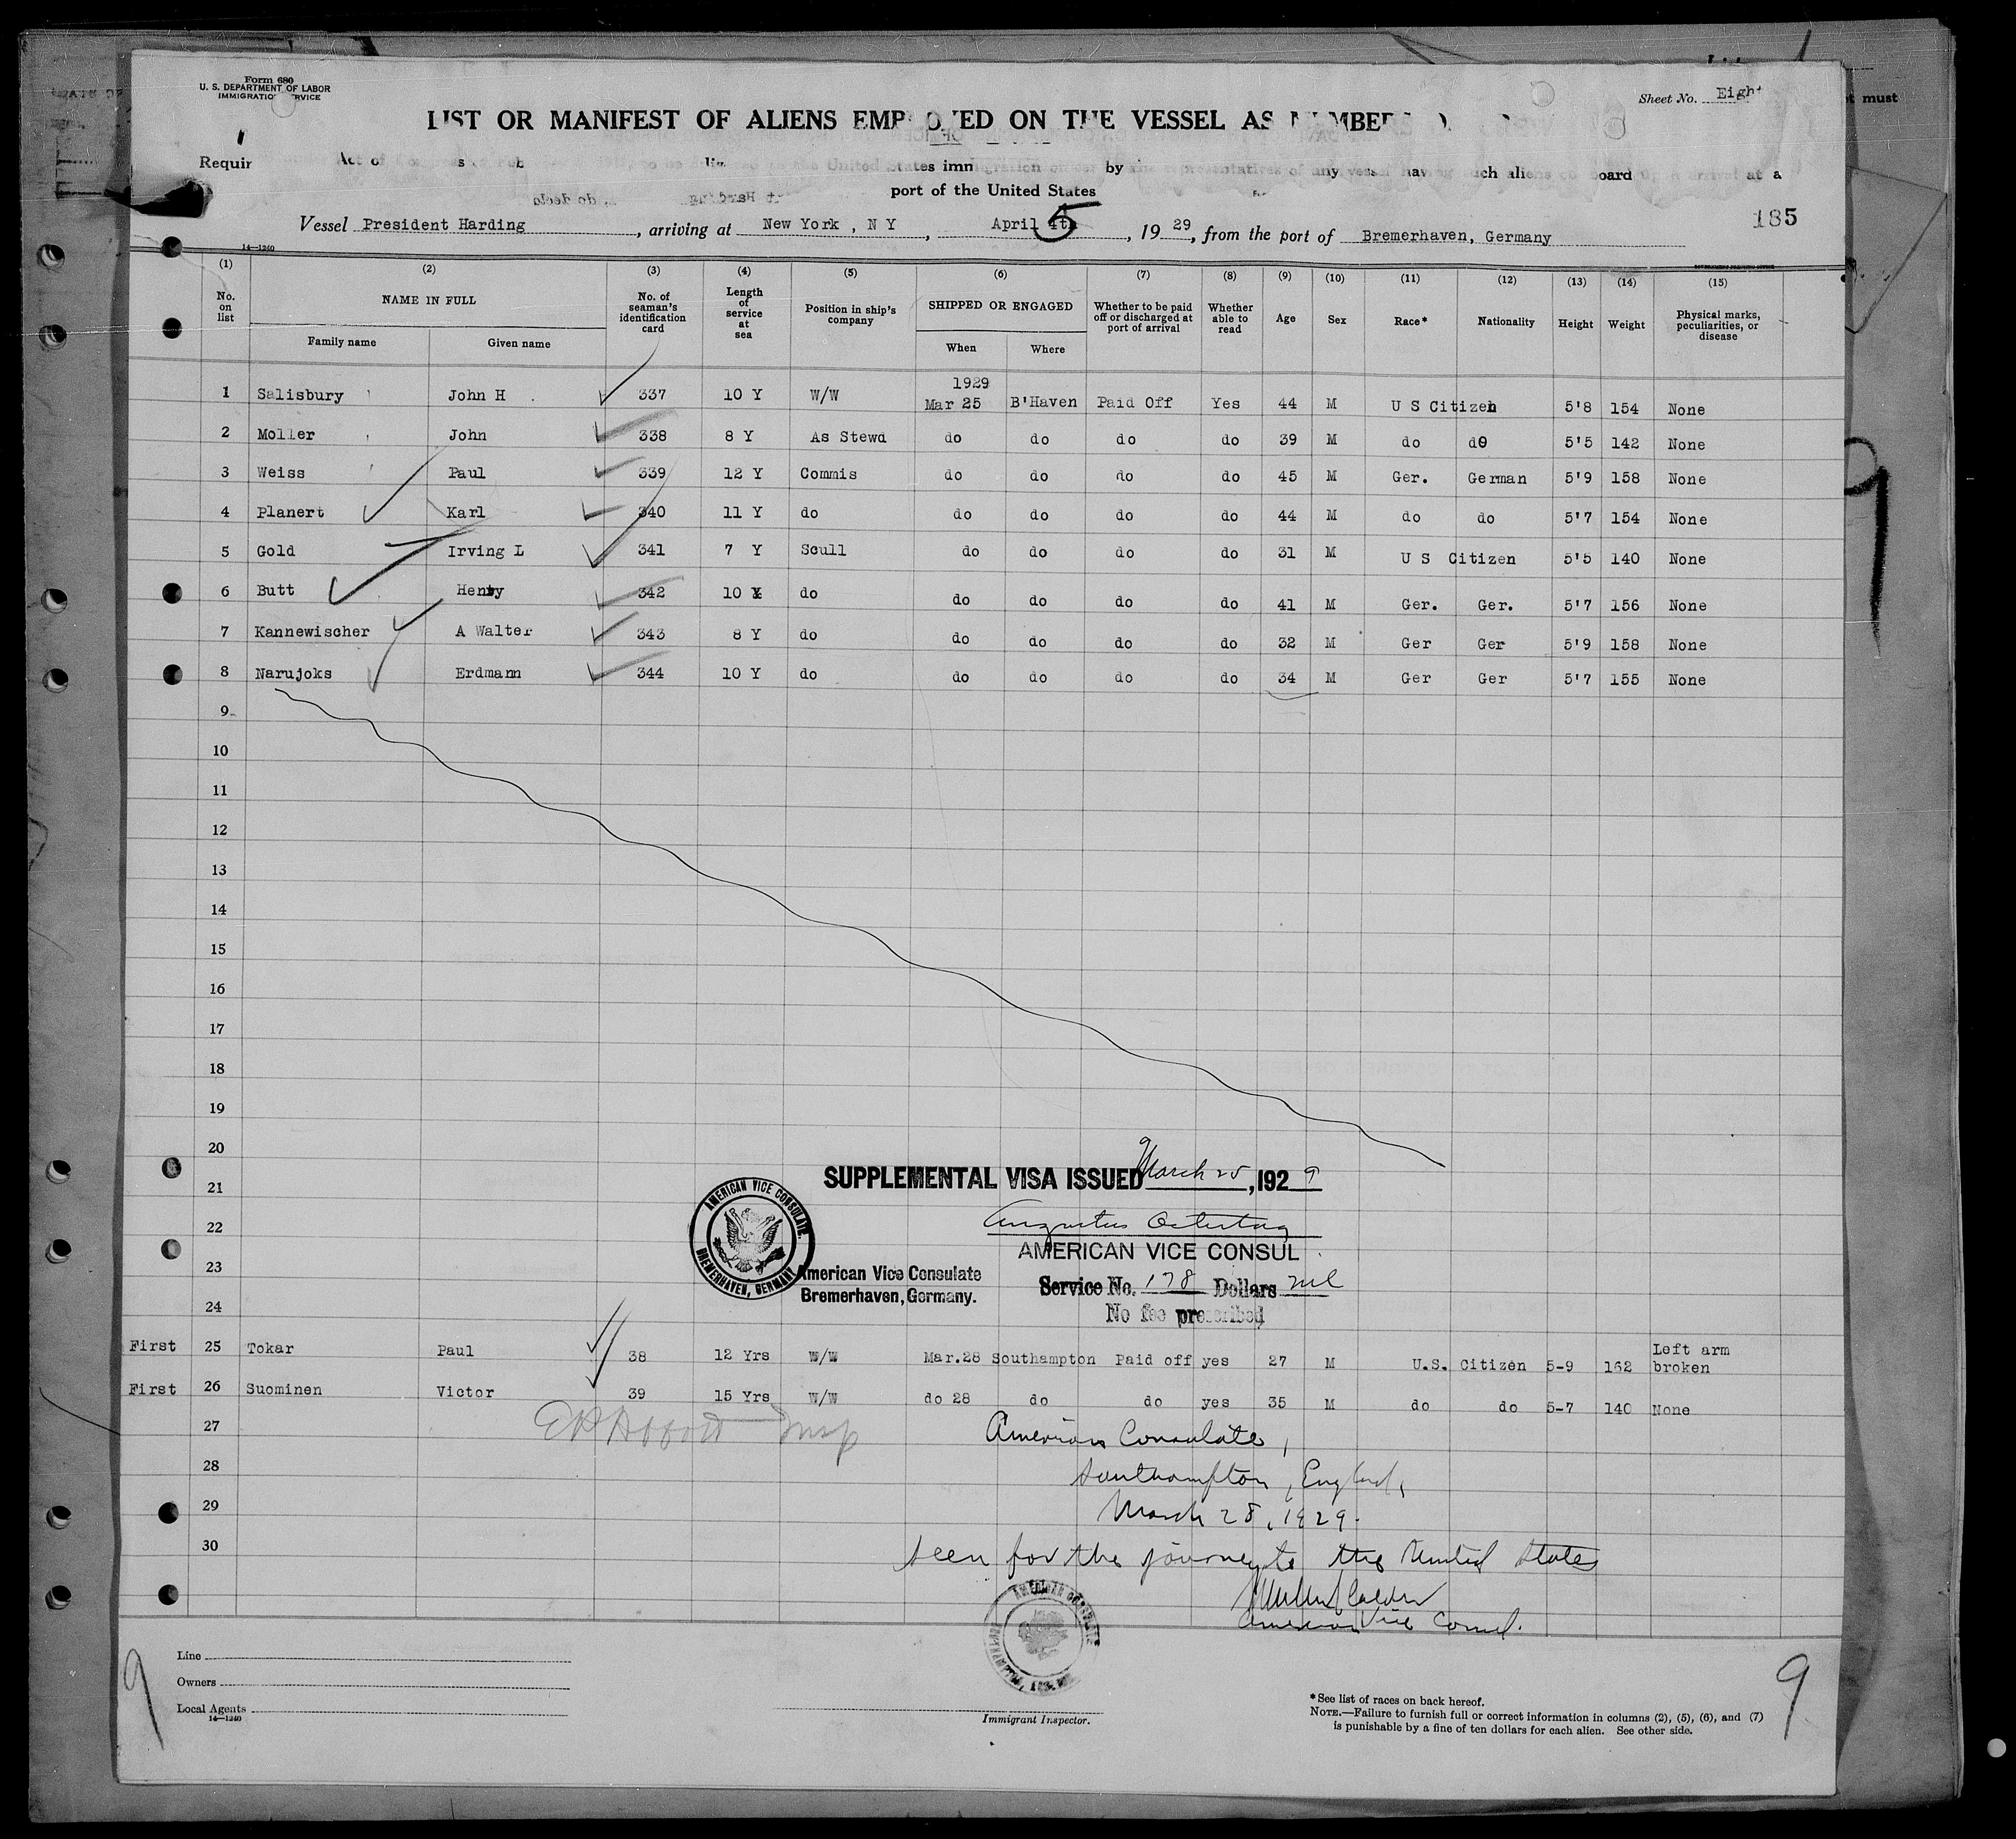 Form 680
U. S. DEPARTMENT OF LABOR
IMMIGRATION SERVICE
Sheet No. Eight
must
LIST OR MANIFEST OF ALIENS EMPLOYED ON THE VESSEL AS MEMBERS O
Requir Act of
tes imn by any vessel having such aliens on board upon arrival at a
port of the United States
185
Vessel President Harding, arriving at New York, N Y, April 4th 5, 1929, from the port of Bremerhaven, Germany
14—1240
(1) (2) (3) (4) (5) (6) (7) (8) (9) (10) (11) (12) (13) (14) (15)
No. on list NAME IN FULL No. of seaman's identification card Length of service at sea Position in ship's company SHIPPED OR ENGAGED Whether to be paid off or discharged at port of arrival Whether able to read Age Sex Race* Nationality Height Weight Physical marks, peculiarities, or disease
Family name Given name When Where
1929
1 Salisbury John H 337 10 Y W/W Mar 25 B'Haven Paid Off Yes 44 M U S Citizen 5'8 154 None
2 Moller John 338 8 Y As Stewd do do do do 39 M do do 5'5 142 None
3 Weiss Paul 339 12 Y Commis do do do do 45 M Ger. German 5'9 158 None
4 Planert Karl 340 11 Y do do do do do 44 M do do 5'7 154 None
5 Gold Irving L 341 7 Y Scull do do do do 31 M U S Citizen 5'5 140 None
6 Butt Henry 342 10 Y do do do do do 41 M Ger. Ger. 5'7 156 None
7 Kannewischer A Walter 343 8 Y do do do do do 32 M Ger Ger 5'9 158 None
8 Narujoks Erdmann 344 10 Y do do do do do 34 M Ger Ger 5'7 155 None
9
10
11
12
13
14
15
16
17
18
19
20
SUPPLEMENTAL VISA ISSUED March 25, 1929
21
AMERICAN VICE CONSULATE. BREMERHAVEN, GERMANY
22
Augustus Ostertag
AMERICAN VICE CONSUL
23
American Vice Consulate
Bremerhaven, Germany.
Service No. 178 Dollars nil
No fee prescribed
24
First 25 Tokar Paul 38 12 Yrs W/W Mar.28 Southampton Paid off yes 27 M U.S. Citizen 5-9 162 Left arm broken
First 26 Suominen Victor 39 15 Yrs W/W do 28 do do yes 35 M do do 5-7 140 None
27
Insp
American Consulate,
28
Southampton, England,
29
March 28, 1929.
30
Seen for the journey to the United States
American Vice Consul.
AMERICAN CONSULATE
Line
Owners
Local Agents
14—1240
Immigrant Inspector.
*See list of races on back hereof.
NOTE.—Failure to furnish full or correct information in columns (2), (5), (6), and (7)
is punishable by a fine of ten dollars for each alien. See other side.
9
9
9